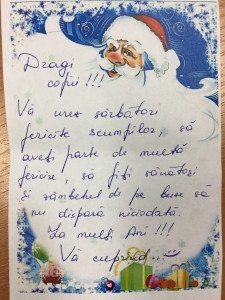 Dragi
copii !!!
Vă urez sărbători
fericite scumpilor, să
aveți parte de multă
fericire, să fiți sănătoși
și zâmbetul de pe buze să
nu dispară niciodată.
La mulți Ani !!!
Vă cuprind...